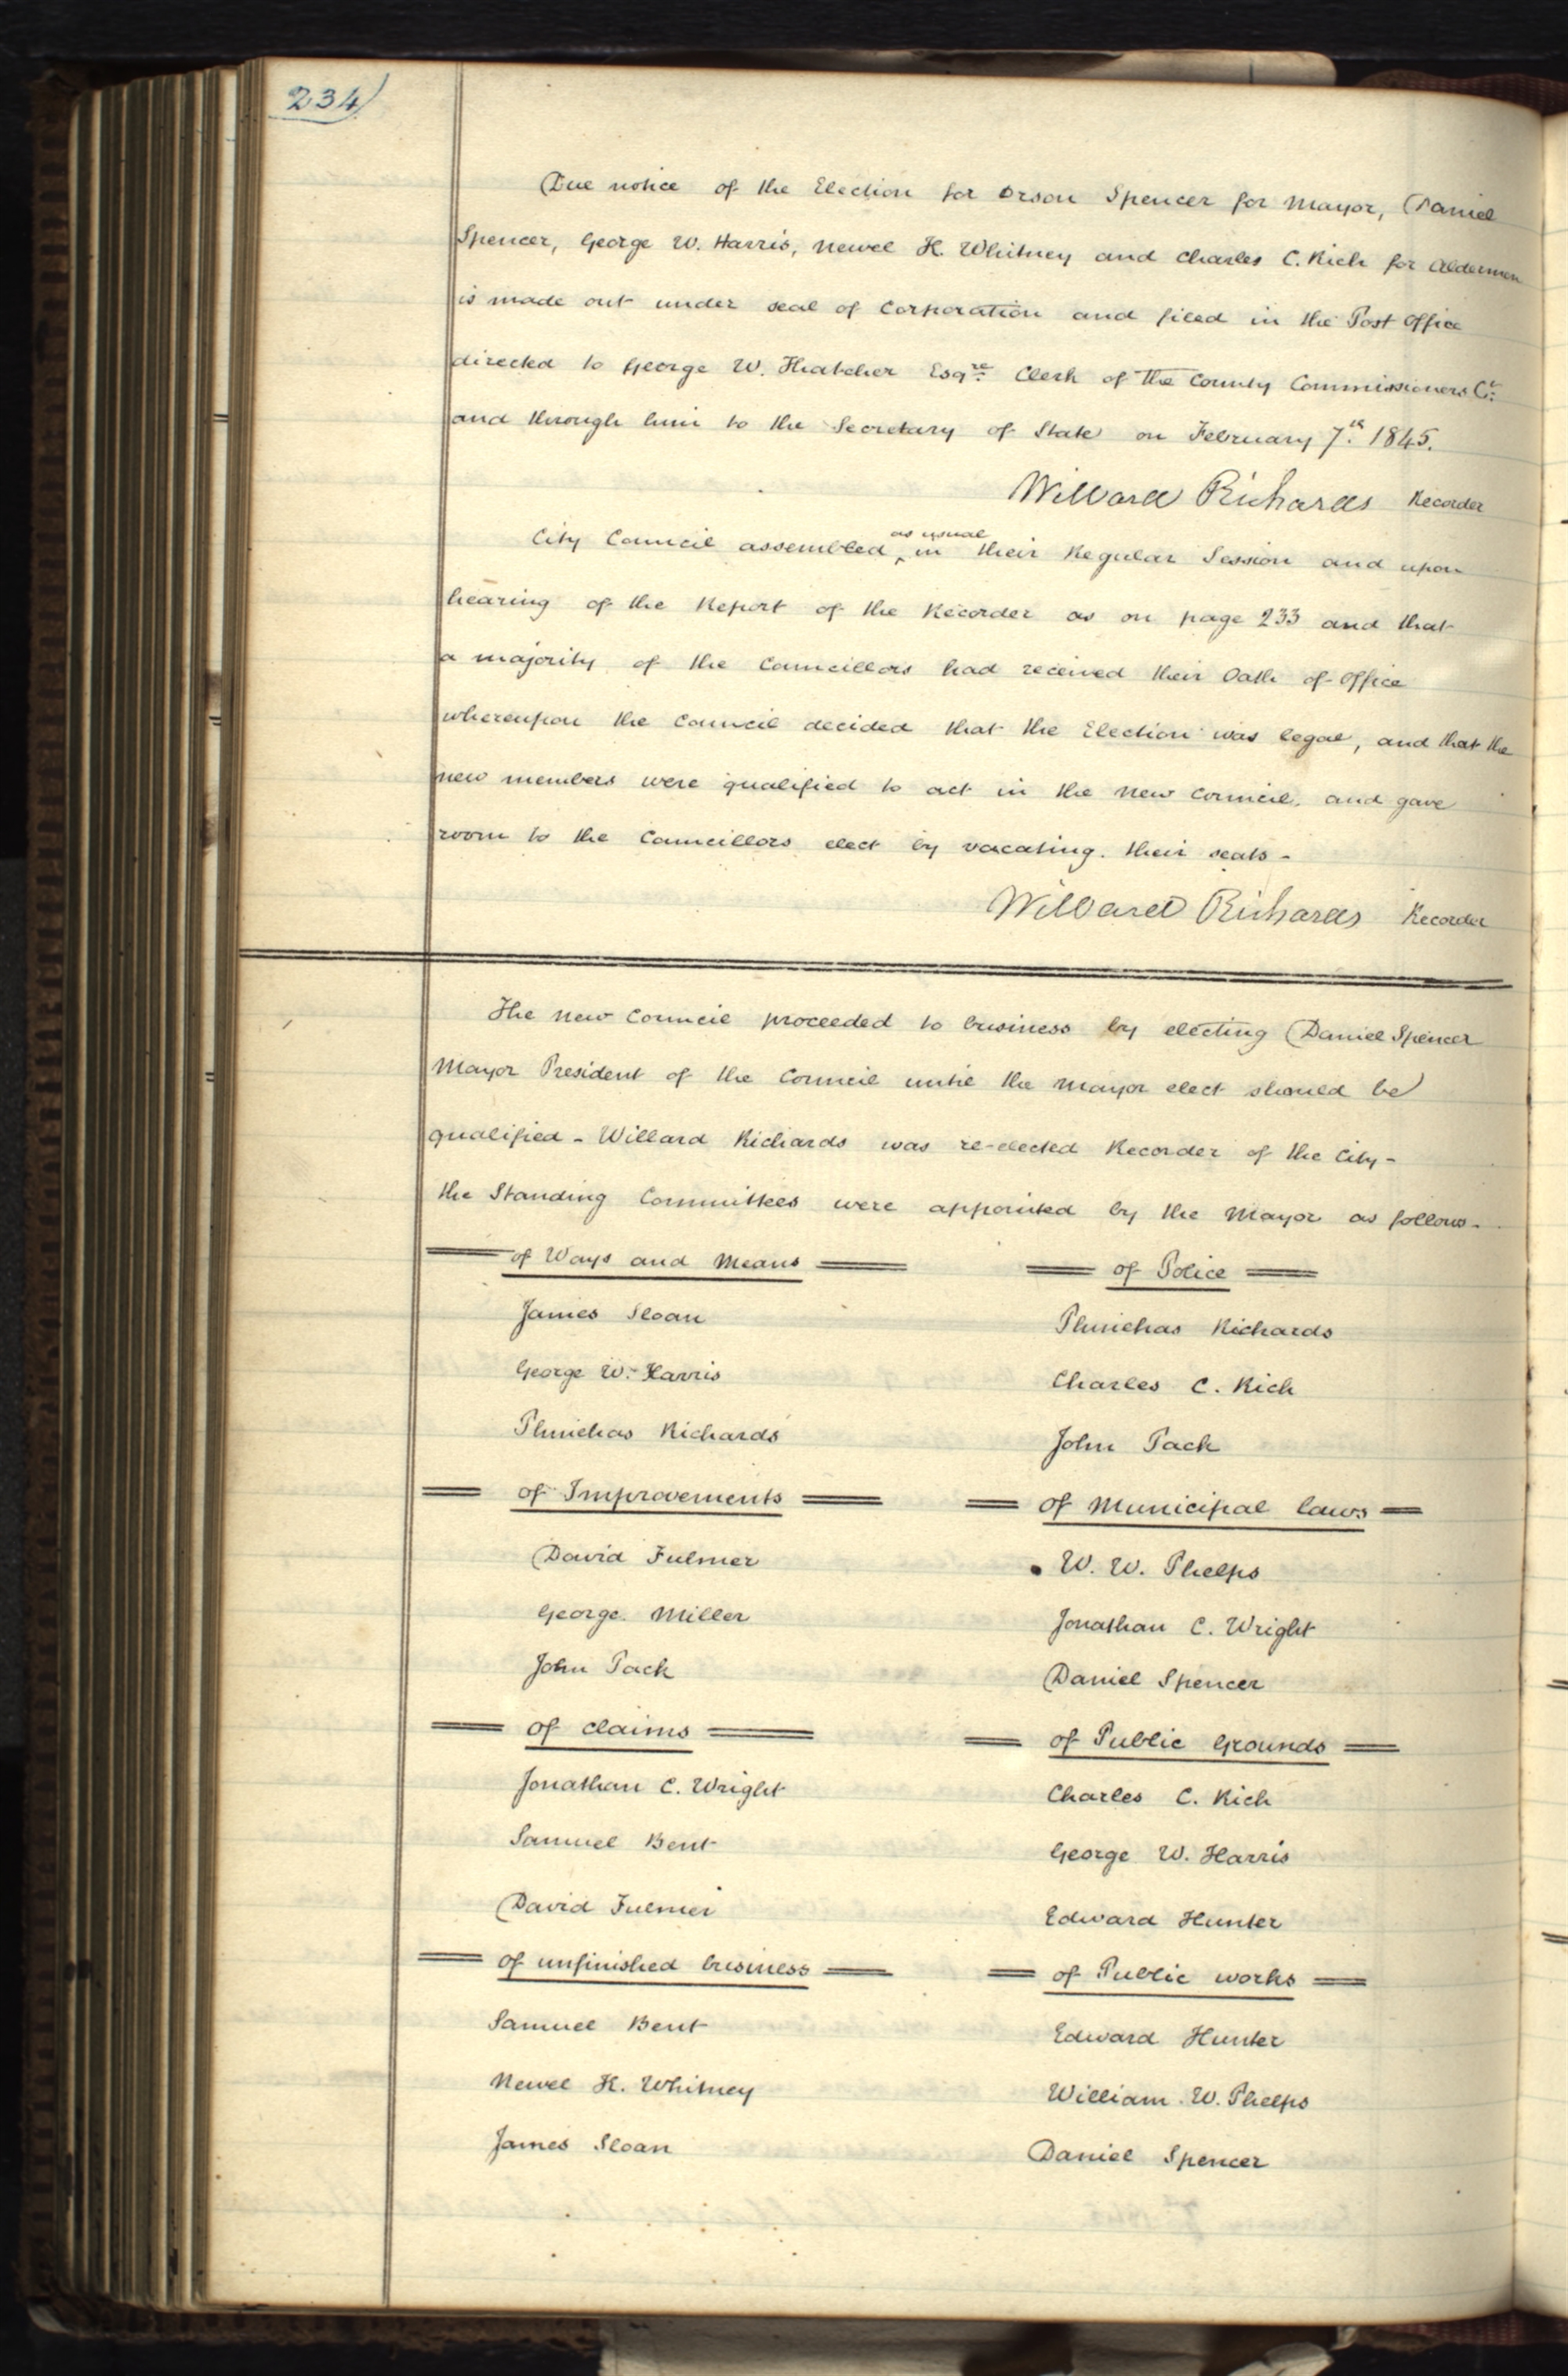 234)
Due notice of the Election for Orson Spencer for Mayor, Daniel
Spencer, George W. Harris, Newel K. Whitney and Charles C. Rich for Aldermen
is made out under seal of Corporation and filed in the Post Office
directed to George W. Thatcher Esqre. Clerk of the County Commissioners Ct.
and through him to the Secretary of State on February 7th. 1845.
Willard Richards Recorder
as usual
City Council assembled ^ in their Regular Session and upon
hearing of the Report of the Recorder as on page 233 and that
a majority of the Councillors had received their Oath of Office
whereupon the Council decided that the Election was legal, and that the
new members were qualified to act in the New Council, and gave
room to the Councillors elect by vacating. their seats -
Willard Richards Recorder
The New Council proceeded to business by electing Daniel Spencer
Mayor President of the Council until the Mayor elect should be
qualified - Willard Richards was re-elected Recorder of the City -
the Standing Committees were appointed by the Mayor as follows -
of Ways and Means
James Sloan
George W. Harris
Phinehas Richards
of Improvements
David Fulmer
George. Miller
John Pack
of claims
Jonathan C. Wright
Samuel Bent
David Fulmer
of unfinished business
Samuel Bent
Newel K. Whitney
James Sloan
of Police
Phinehas Richards
Charles C. Rich
John Pack
of Municipal laws
W. W. Phelps
Jonathan C. Wright
Daniel Spencer
of Public Grounds
Charles C. Rich
George W. Harris
Edward Hunter
of Public works
Edward Hunter
William. W. Phelps
Daniel Spencer